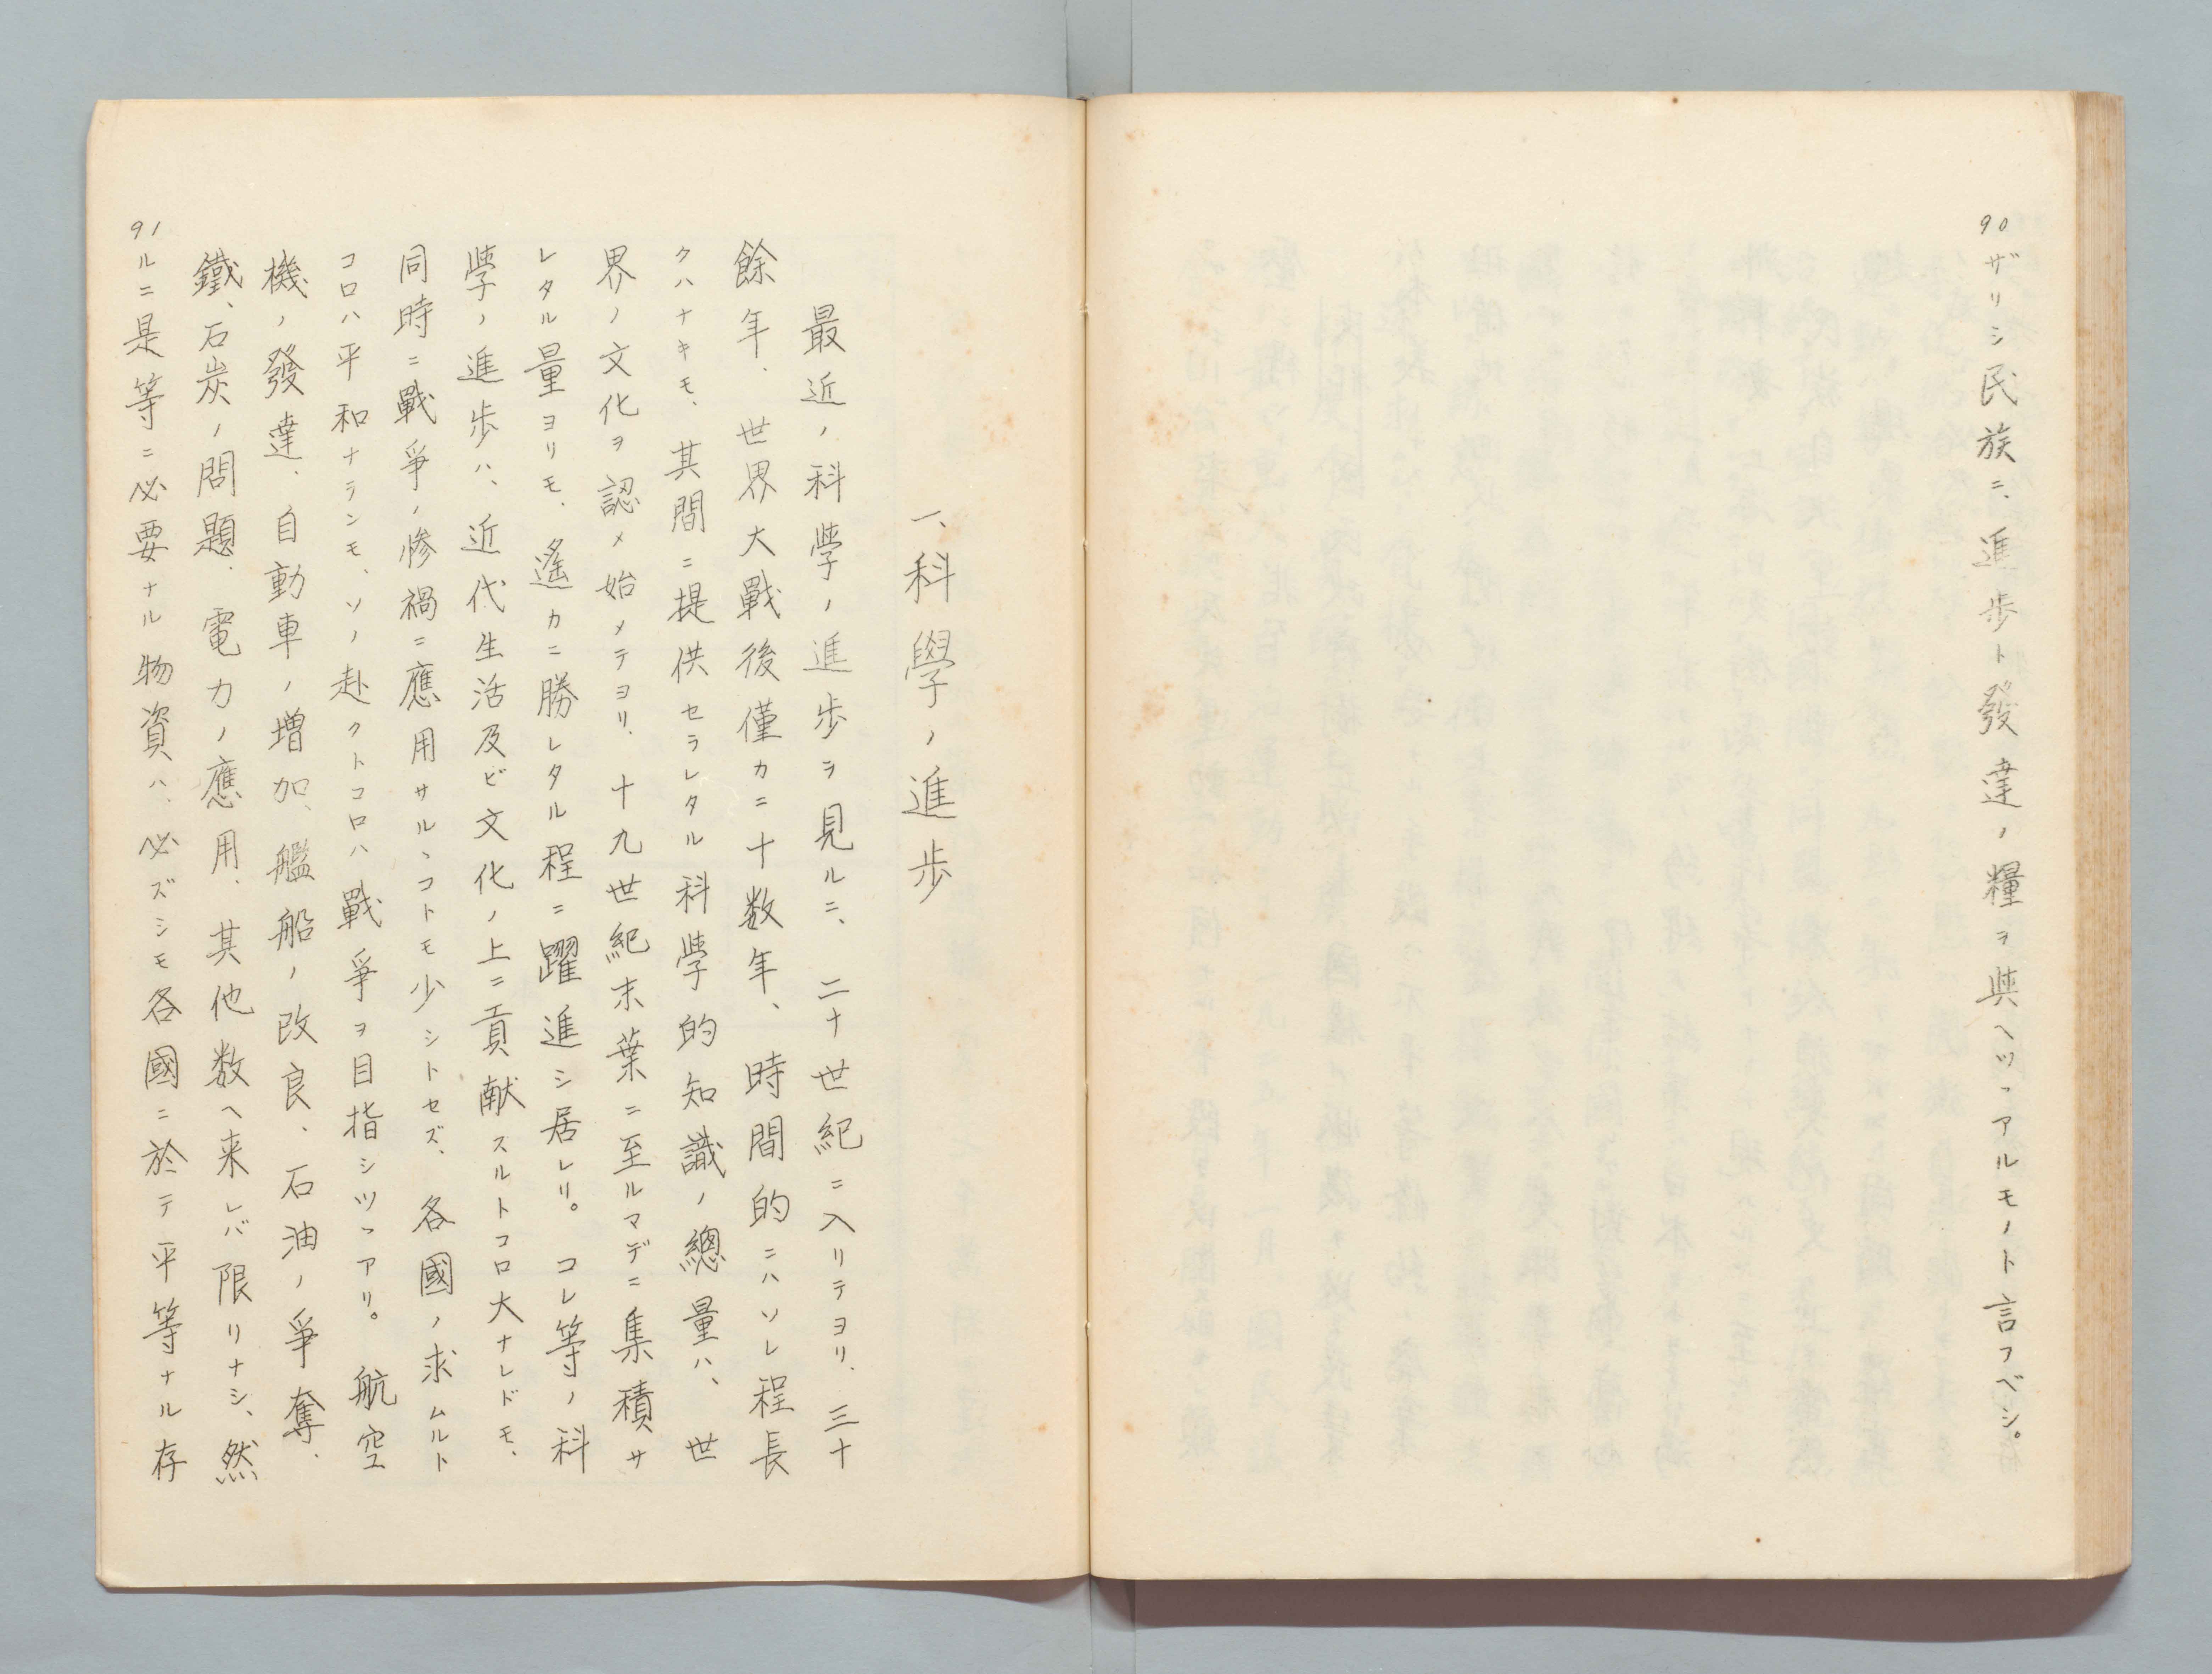 90
ザリシ民族ニ、進歩ト發達ノ糧ヲ與ヘツヽアルモノト言フベシ。
一、科學ノ進歩
最近ノ科學ノ進歩ヲ見ルニ、二十世紀ニ入リテヨリ、三十
餘年、世界大戰後僅カニ十数年、時間的ニハソレ程長
クハナキモ、其間ニ提供セラレタル科學的知識ノ總量ハ、世
界ノ文化ヲ認メ始メテヨリ、十九世紀末葉ニ至ルマデニ集積サ
レタル量ヨリモ、遙カニ勝レタル程ニ躍進シ居レリ。コレ等ノ科
學ノ進歩ハ、近代生活及ビ文化ノ上ニ貢献スルトコロ大ナレドモ、
同時ニ戰爭ノ慘禍ニ應用サルヽコトモ少シトセズ、各國ノ求ムルト
コロハ平和ナランモ、ソノ赴クトコロハ戰爭ヲ目指シツヽアリ。航空
機ノ發達、自動車ノ増加、艦船ノ改良、石油ノ爭奪、
鐵、石炭ノ問題、電力ノ應用、其他数ヘ来レバ限リナシ、然
91
ルニ是等ニ必要ナル物資ハ、必ズシモ各國ニ於テ平等ナル存